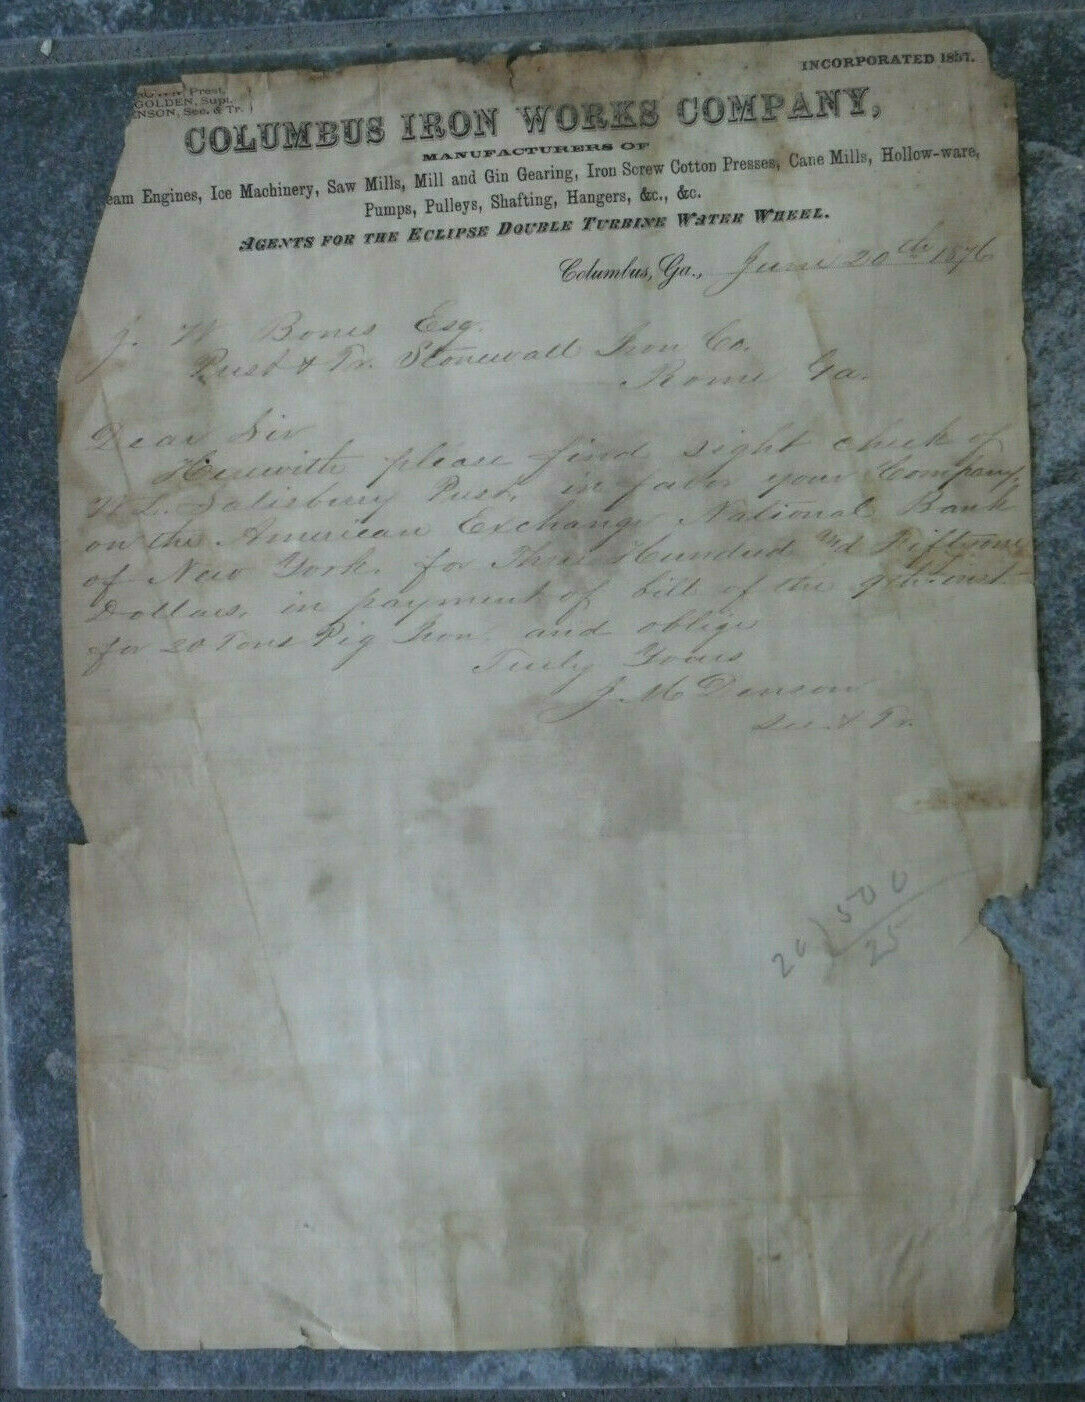 INCORPORATED 1857.
Prest.
GOLDEN, Supt.
ENSON, Sec. & Tr.
COLUMBUS IRON WORKS COMPANY,
MANUFACTURERS OF
eam Engines, Ice Machinery, Saw Mills, Mill and Gin Gearing, Iron Screw Cotton Presses, Cane Mills, Hollow-ware,
Pumps, Pulleys, Shafting, Hangers, &c., &c.
AGENTS FOR THE ECLIPSE DOUBLE TURBINE WATER WHEEL.
Columbus, Ga., June 20th 1876
J. W. Bones Esq.
Prest & Tr. Stonewall Iron Co.
Rome Ga.
Dear Sir
Herewith please find sight check of
W. L. Salisbury Prest, in favor your Company,
on the American Exchange National Bank
of New York. for Three Hundred Fifty
Dollars, in payment of bill of the 9th inst
for 20 Tons Pig Iron. and oblige
Truly Yours
J. M Denson
Sec. & Tr.
20) 500
25